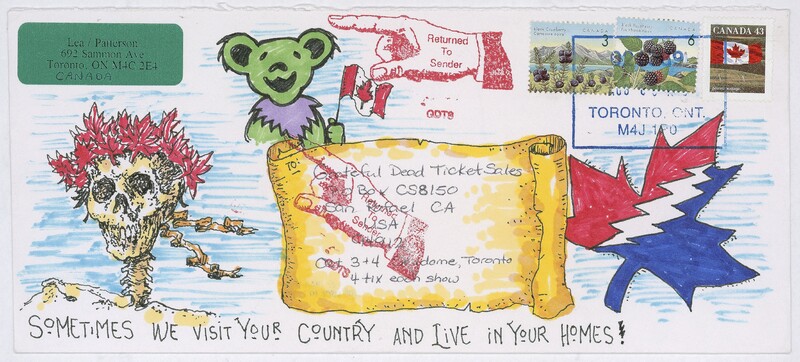 Lea Patterson
692 Sammon Ave
Toronto, ON M4C 2E4
CANADA
Returned
To
Sender
QDTS
3
6
CANADA 43
TORONTO, ONT.
M4J 1P0
TO:
Grateful Dead Ticket Sales
PO Box CS8150
San Rafael CA
USA
94942
To
Sender
QDTS
Oct 3+4 dome, Toronto
4 tix each show
SOMETIMES WE VISIT YOUR COUNTRY AND LIVE IN YOUR HOMES!